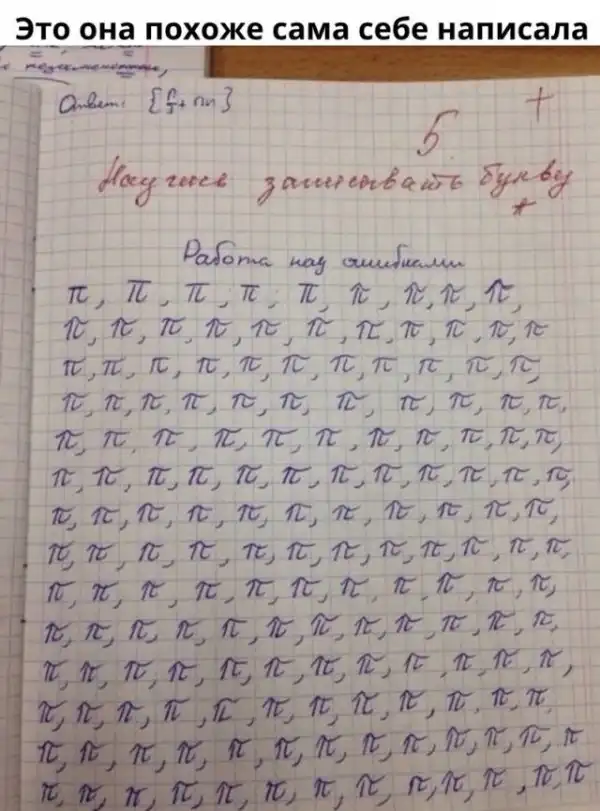 Это она похоже сама себе написала
Ответ: {π/3 + πn}
5 +
Научись записывать букву
π
Работа над ошибками
π, π, π, π, π, π, π, π, π,
π, π, π, π, π, π, π, π, π, π, π
π, π, π, π, π, π, π, π, π, π, π,
π, π, π, π, π, π, π, π, π, π, π,
π, π, π, π, π, π, π, π, π, π, π,
π, π, π, π, π, π, π, π, π, π, π, π,
π, π, π, π, π, π, π, π, π, π, π,
π, π, π, π, π, π, π, π, π, π, π, π,
π, π, π, π, π, π, π, π, π, π, π,
π, π, π, π, π, π, π, π, π, π, π, π,
π, π, π, π, π, π, π, π, π, π, π, π,
π, π, π, π, π, π, π, π, π, π, π, π
π, π, π, π, π, π, π, π, π, π, π, π, π
π, π, π, π, π, π, π, π, π, π, π, π, π